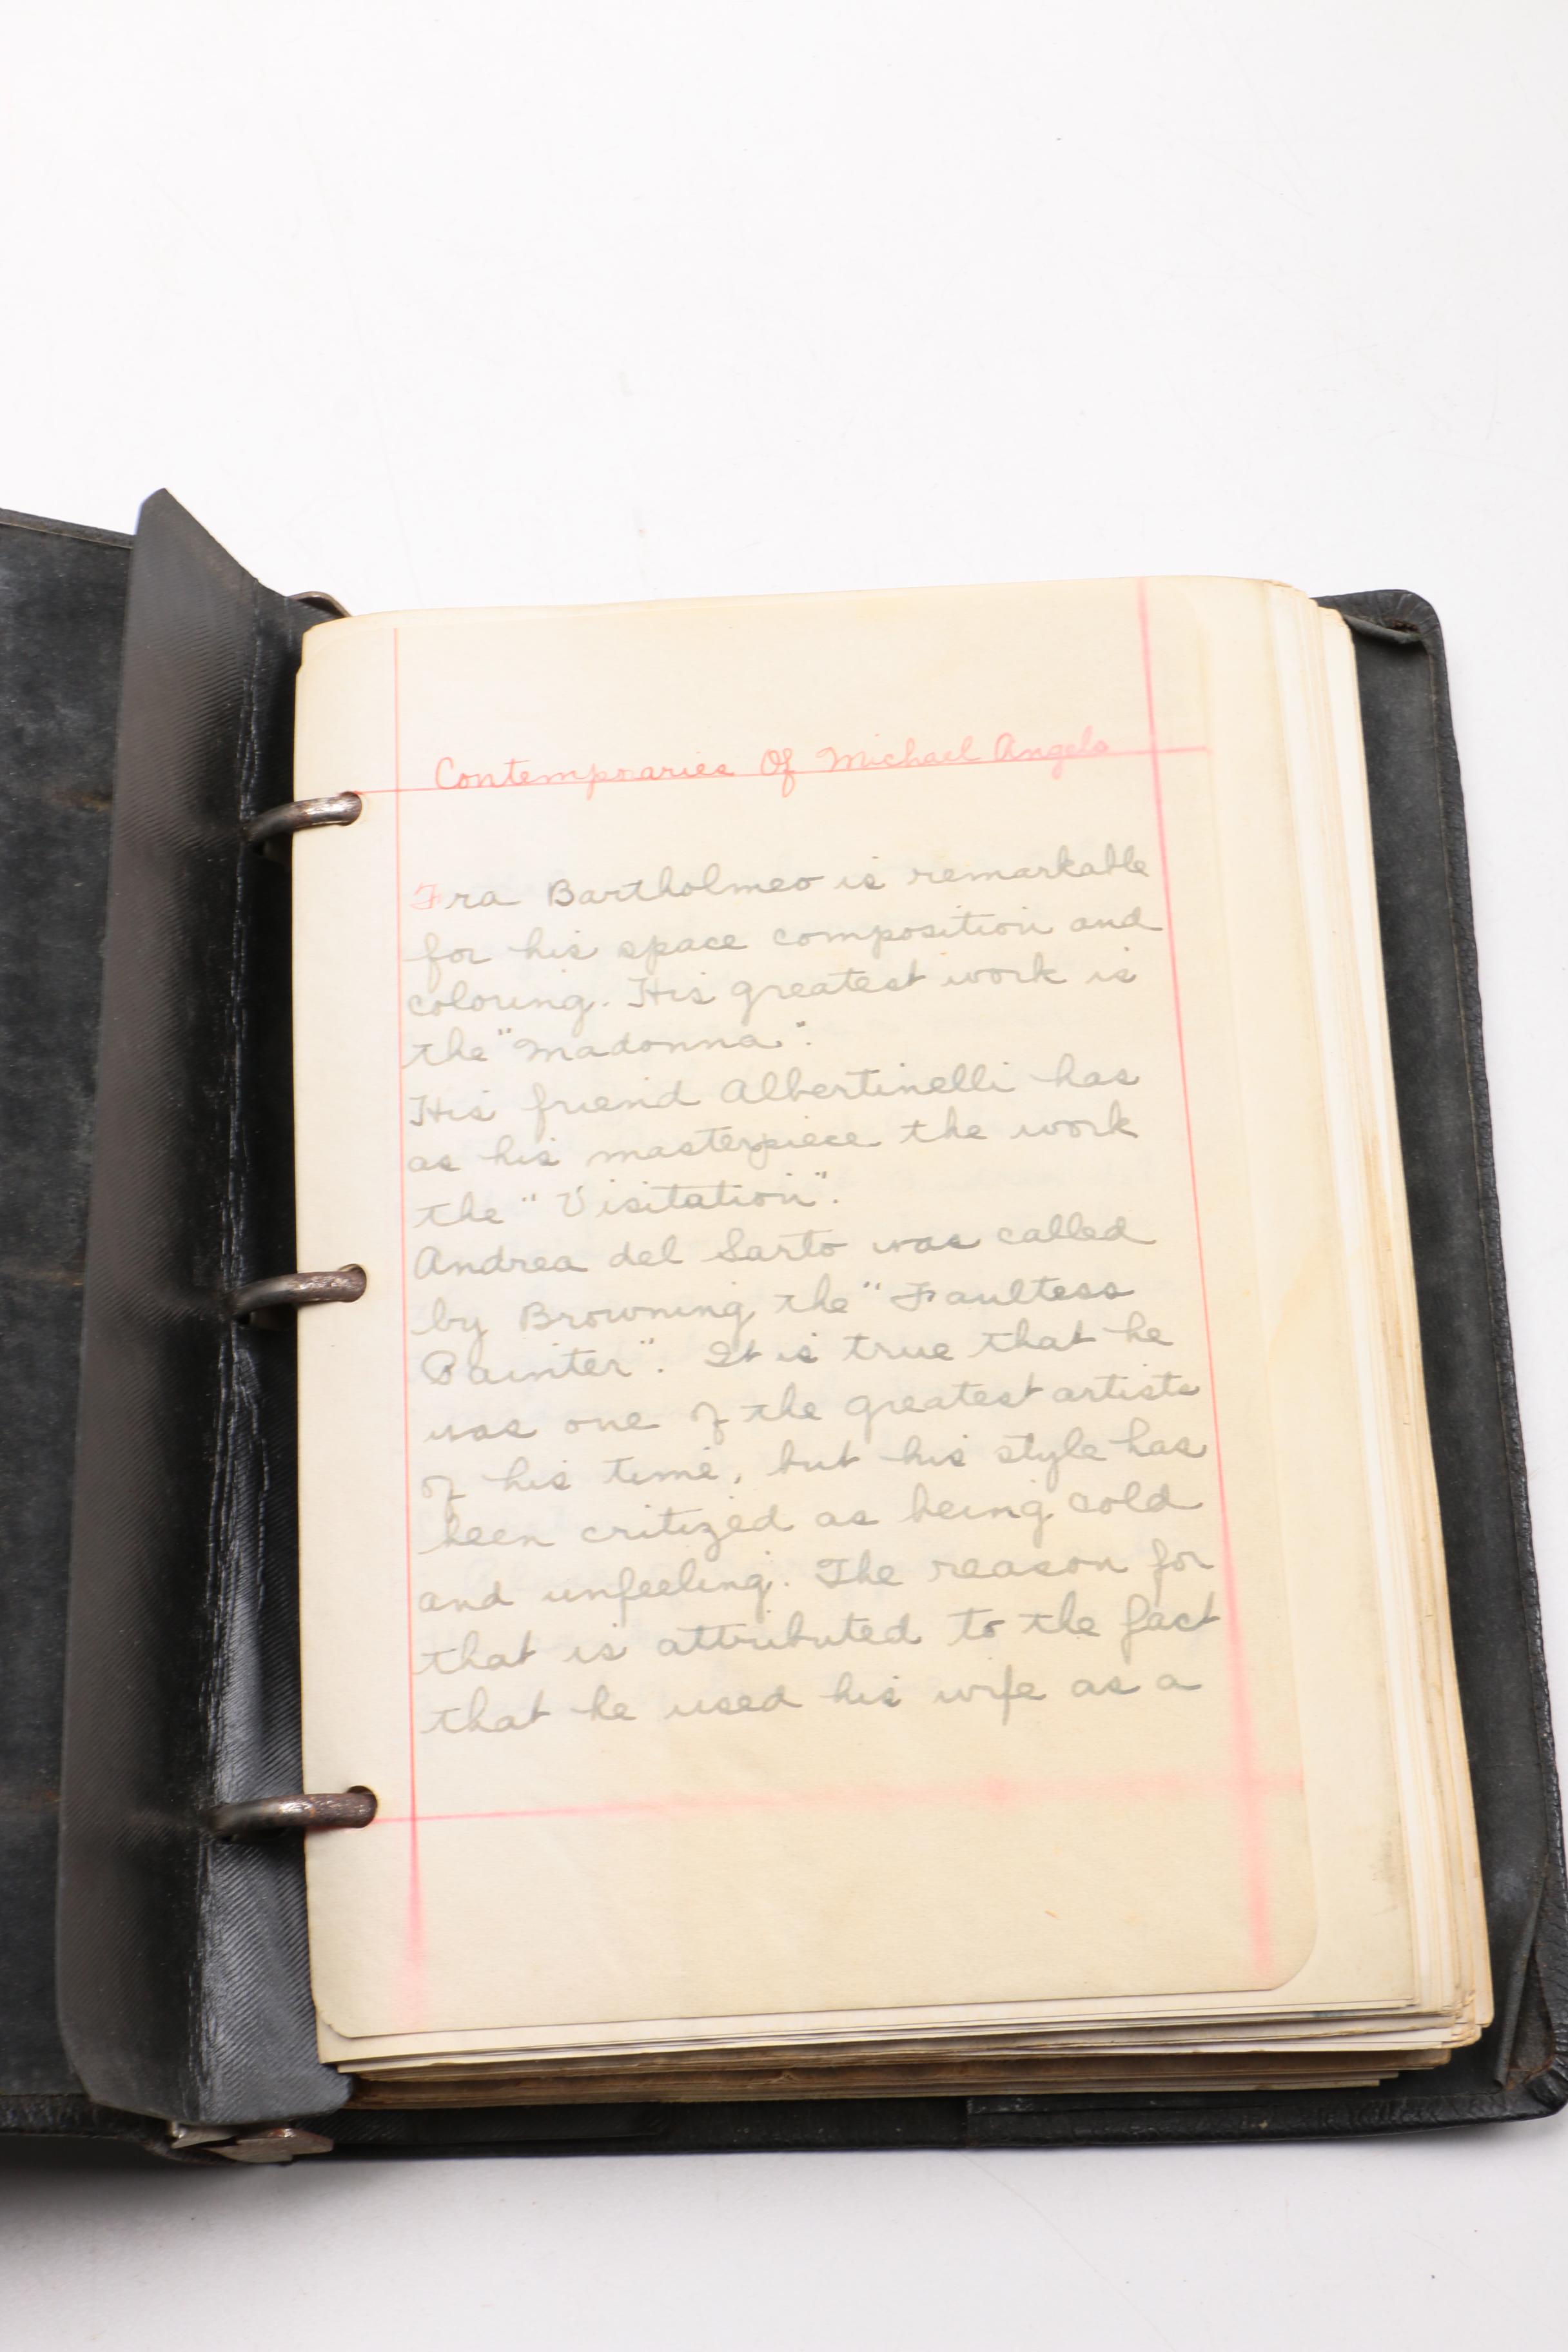 Contemporaries Of Michael Angelo
Fra Bartholmeo is remarkable
for his space composition and
coloring. His greatest work is
the "Madonna".
His friend Albertinelli has
as his masterpiece the work
the "Visitation".
Andrea del Sarto was called
by Browning the "Faultess
Painter". It is true that he
was one of the greatest artists
of his time, but his style has
been critized as being cold
and unfeeling. The reason for
that is attributed to the fact
that he used his wife as a